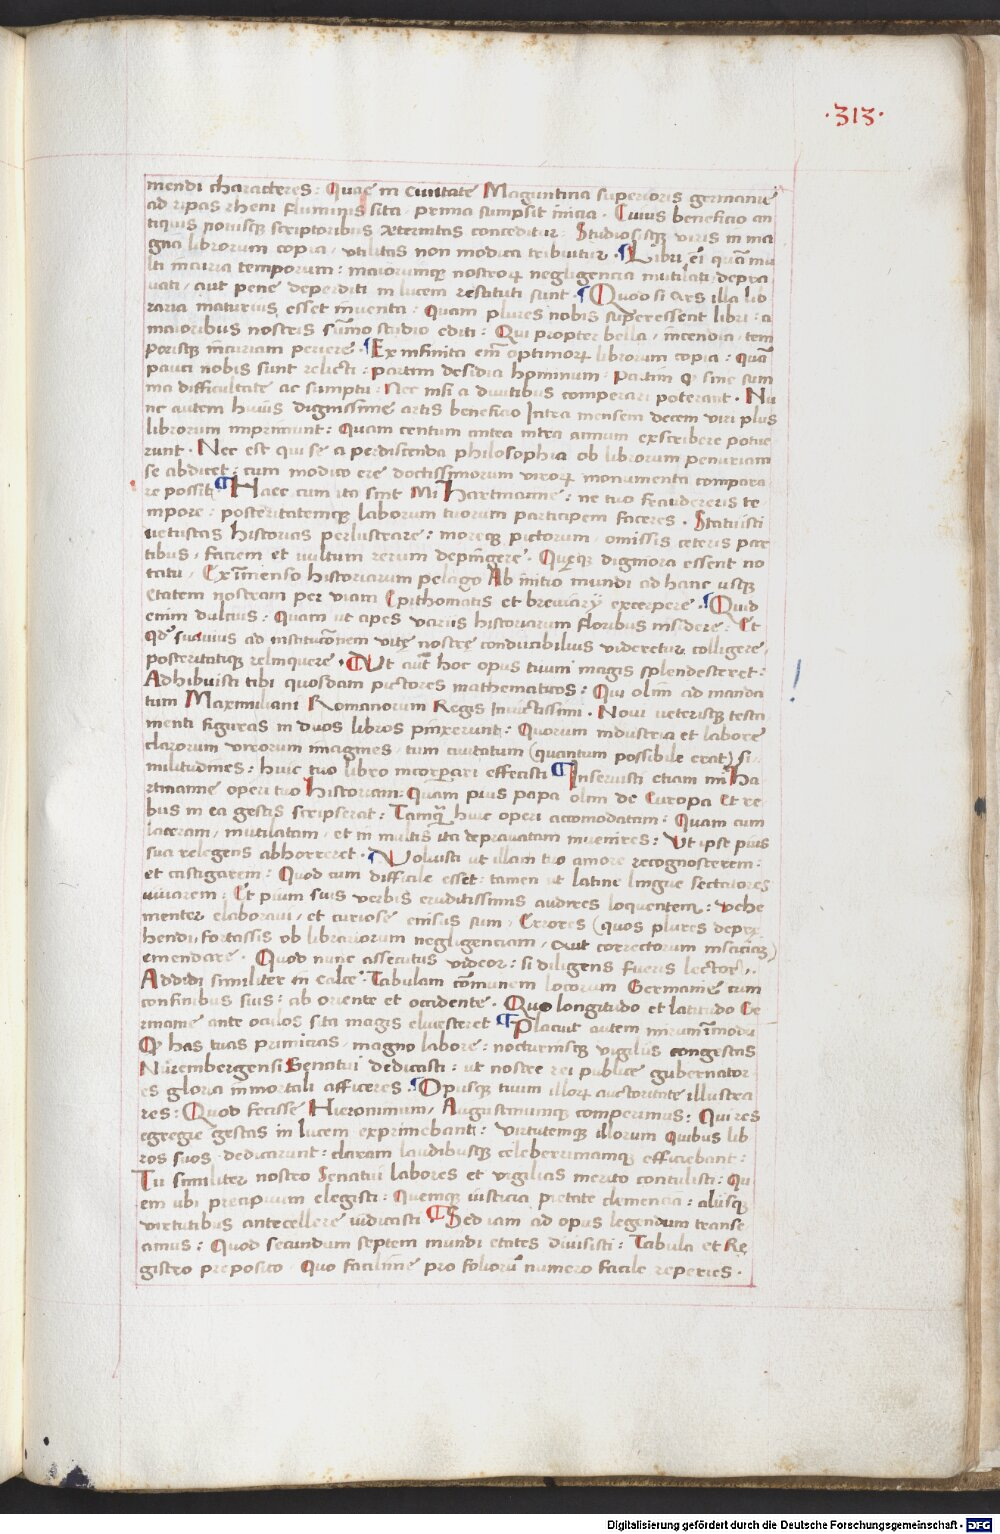 ·313·
mendi characteres: Quae in ciuitate Maguntina superioris germanie
ad ripas rheni fluminis sita · prima sumpsit inicia · Cuius beneficio an
tiquis nouisq; scriptoribus æternitas conceditur: Studiosisq; viris in ma
gna librorum copia, vtilitas non modica tribuitur · ¶ Libri eī quā mu
lti incuria temporum: maiorumq; nostroꝝ negligencia mutilati depra
uati, aut pene deperditi in lucem restituti sunt · ¶ Quod si Ars illa lib
raria maturius esset inuenta: Quam plures nobis superessent libri: a
maioribus nostris sūmo studio editi: Qui propter bella, incendia, tem
porisq; incuriam periere · ¶ Ex infinita em̄ optimoꝝ librorum copia: quā
pauci nobis sunt relicti: partim desidia hominum: Partim ꝙ sine sum
ma difficultate ac sumptu: Nec nisi a diuitibus comperari poterant · Nu
nc autem huius dignissime artis beneficio Intra mensem decem viri plus
librorum imprimunt: Quam centum antea intra annum exscribere potue
runt · Nec est qui se a perdiscenda philosophia ob librorum penuriam
se abdicet: cum modico ere doctissimorum viroꝝ monumenta compara
re possit ¶ Haec cum ita sint Mi Hartmanne: ne tuo fraudereris te
mpore: posteritatemq; laborum tuorum participem faceres · Statuisti
vetustas historias perlustrare: moreq; pictorum, omissis ceteris par
tibus, faciem et vultum rerum depingere · Queq; digniora essent no
tatu, Ex īmenso historiarum pelago Ab initio mundi ad hanc usq;
etatem nostram per viam Epithomatis et breuiarij excerpere · ¶ Quid
enim dulcius: Quam ut apes variis historiarum floribus insidere: Et
qd' suauius ad institucōnem vitę nostrę conducibilius videretur colligere,
posteritatiq; relinquere · ¶ Ut aut̄ hoc opus tuum magis splendesceret:
Adhibuisti tibi quosdam pictores mathematicos: Qui olim ad manda
tum Maximiliani Romanorum Regis Inuictissimi · Noui veterisq; testa
menti figuras in duos libros pinxerunt: Quorum industria et labore
clarorum virorum imagines, tum ciuitatum (quantum possibile erat) si
militudines: huic tuo libro incorꝑari effecisti ¶ Inseruisti etiam mi Ha
rtmanne operi tuo Historiam: Quam pius papa olim de Europa Et re
bus in ea gestis scripserat: Tamꝙ̄ huic operi accomodatam: Quam cum
laceram, mutilatam, et in multis ita deprauatam inuenires: Vt ipse pius
sua relegens abhorreret · ¶ Voluisti ut illam tuo amore recognoscerem:
et castigarem: Quod cum difficile esset: tamen ut latine lingue sectatores
iuuarem: Et pium suis verbis eruditissimis audires loquentem: Vehe
menter elaboraui, et curiose enisus sum, Errores (quos plures depræ
hendi, fortassis ob librariorum negligenciam, Aut correctorum insciciā)
emendare · Quod nunc assecutus videor: si diligens fueris lector ·
Addidi similiter in calce · Tabulam cōmunem locorum Germanie cum
confinibus suis: ab oriente et occidente · Quo longitudo et latitudo Ge
rmanie ante oculos sita magis elucesceret ¶ Placuit autem mirum īmodu
Ꝙ has tuas primicias, magno labore: nocturnisq; vigiliis congestas
Nurembergensi Senatui dedicasti: ut nostre rei publice gubernator
es gloria inmortali afficeres · ¶ Opusq; tuum illoꝝ auctoritate illustra
res: Quod fecisse Hieronimum, Augustinumq; comperimus: Qui res
egregie gestas in lucem exprimebant: Virtutemq; illorum Quibus lib
ros suos dedicarunt: claram laudibusq; celeberrimamq; efficiebant:
Tu similiter nostro Senatui labores et vigilias merito contulisti: Qu
em ubi precipuum elegisti: Quemq; iusticia pietate clemencia: aliisq;
virtutibus antecellere iudicasti ¶ Sed iam ad opus legendum transe
amus: Quod secundum septem mundi etates diuisisti: Tabula et Re
gistro preposito · Quo facilime pro folioruʒ numero facile reperies ·
Digitalisierung gefördert durch die Deutsche Forschungsgemeinschaft - DFG